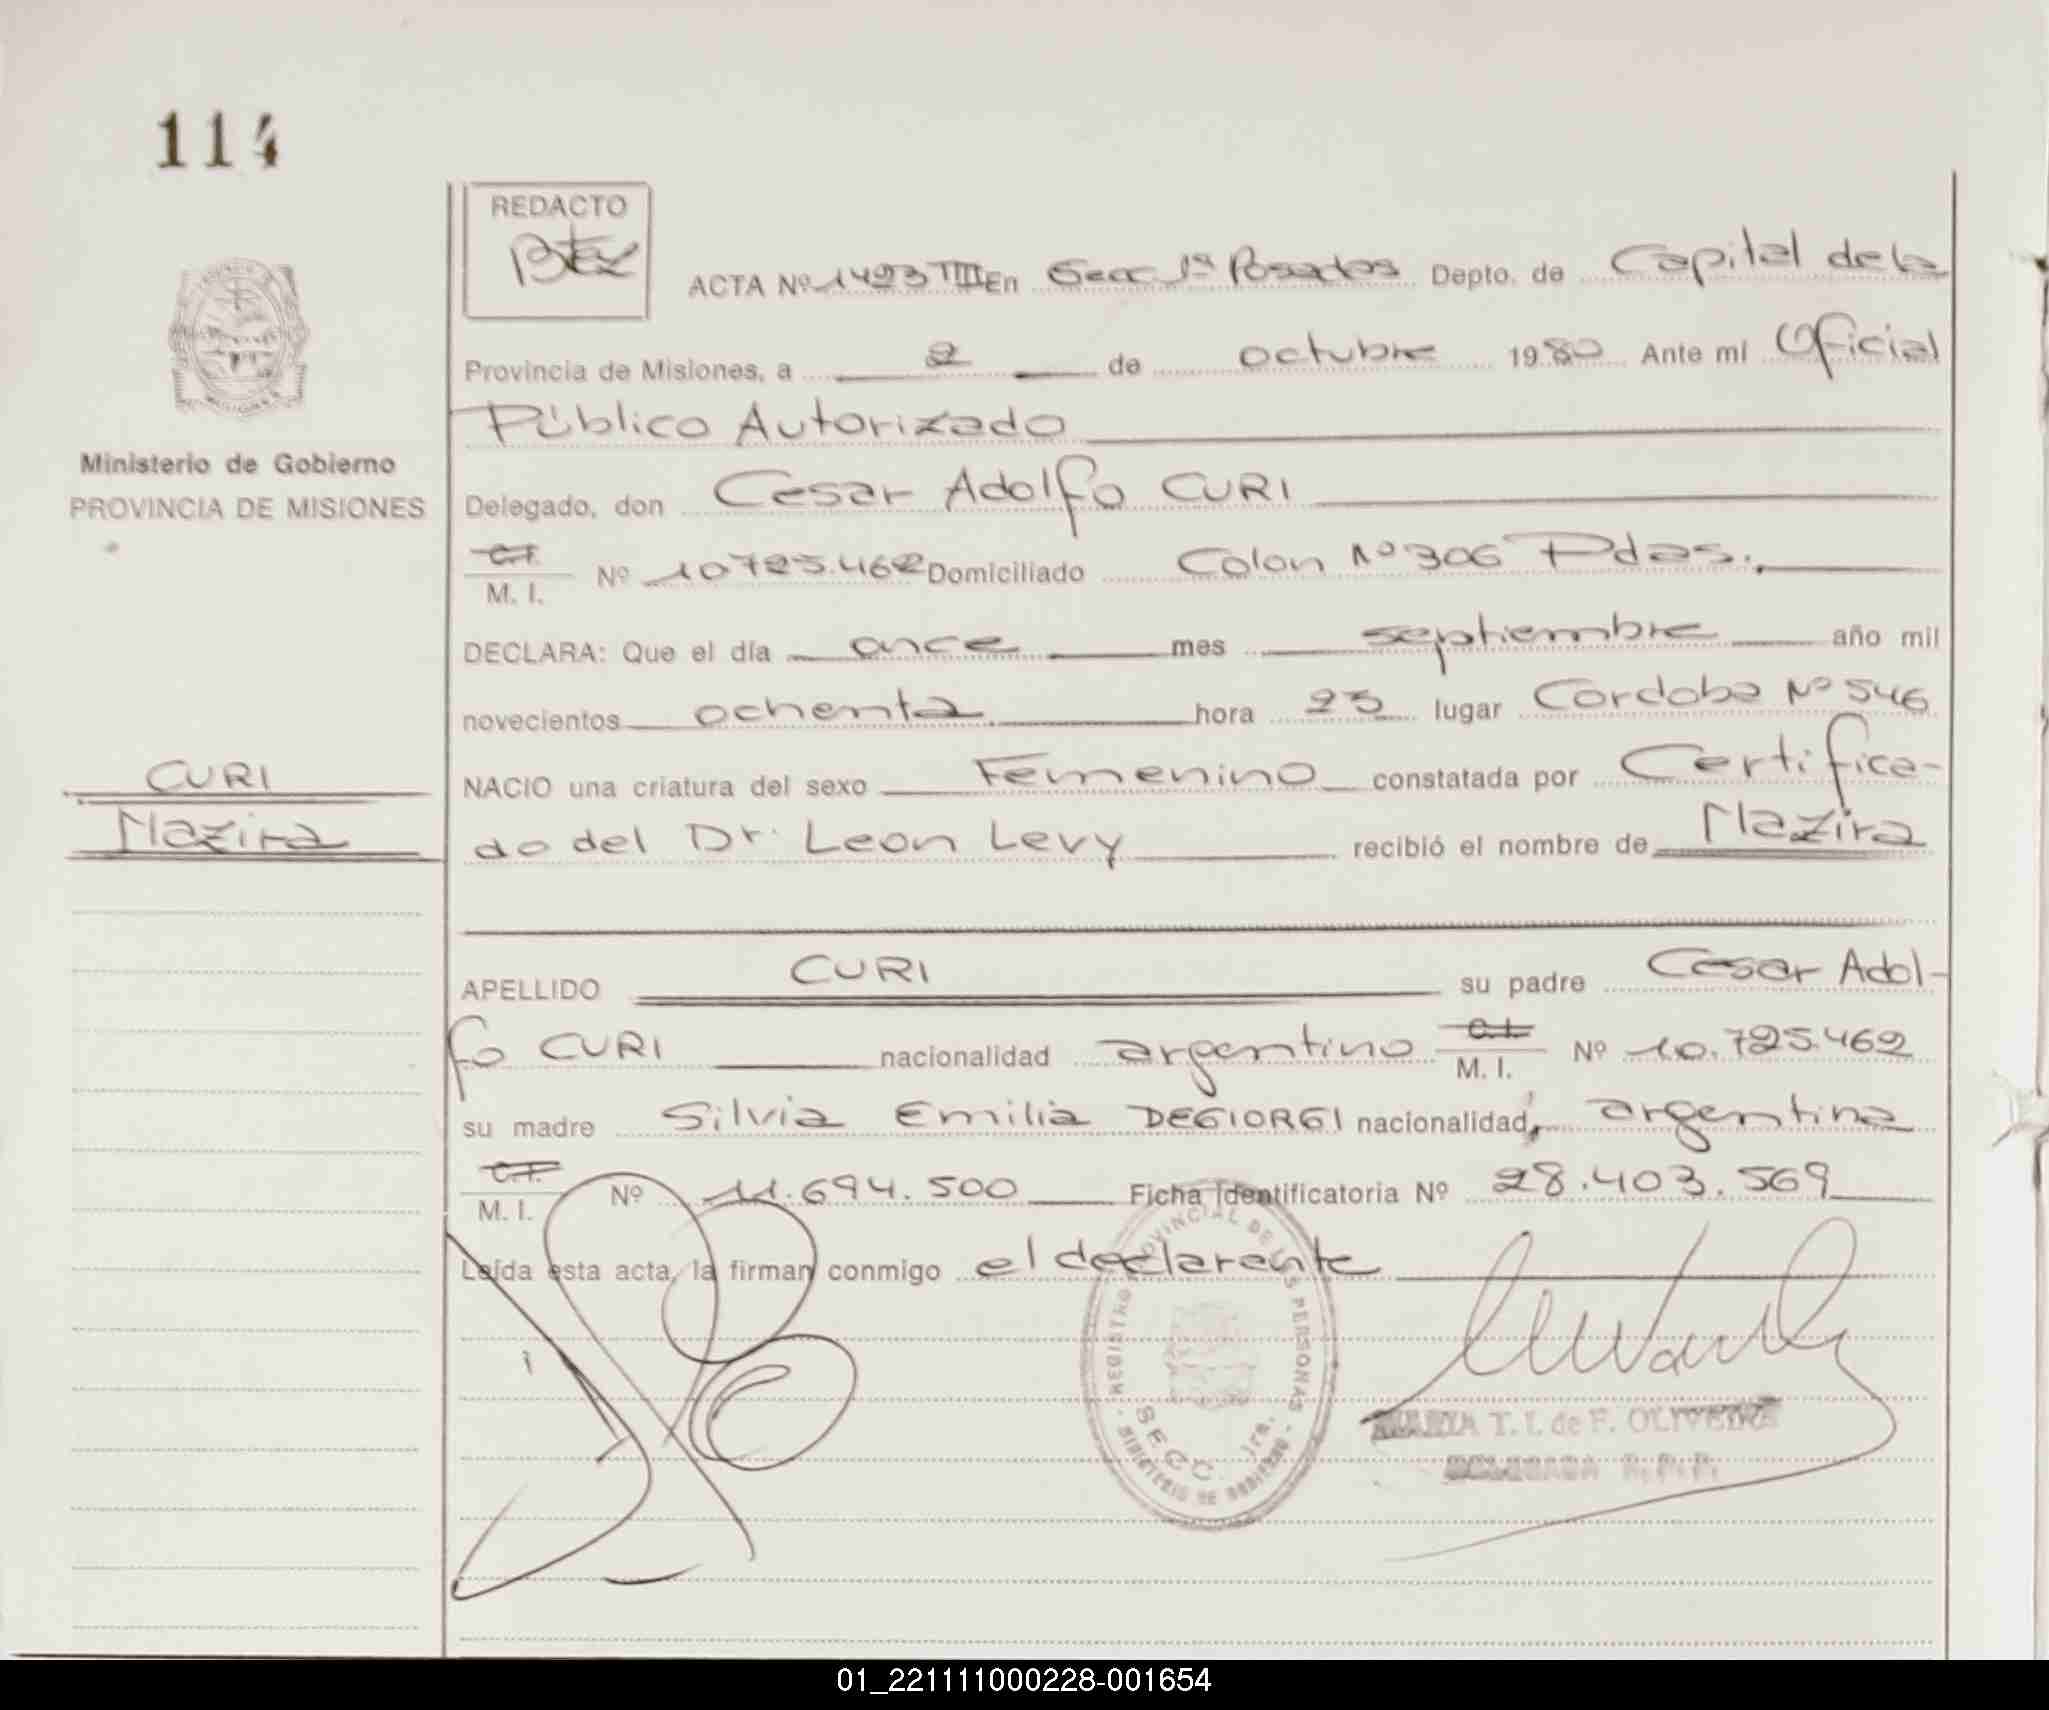 114
REDACTO
ACTA Nº 1493 TIII En Secc 1ª Posadas Depto. de Capital de la
Provincia de Misiones, a 2 de octubre 1980 Ante mi Oficial
Público Autorizado
Ministerio de Gobierno
PROVINCIA DE MISIONES
Delegado, don Cesar Adolfo CURI
C.I.
M. I. Nº 10725.462 Domiciliado Colon Nº 306 Pdas.
DECLARA: Que el día once mes septiembre año mil
novecientos ochenta hora 23 lugar Cordoba Nº 546
NACIO una criatura del sexo Femenino constatada por Certifica-
do del Dr. Leon Levy recibió el nombre de Nazira
CURI
Nazira
APELLIDO CURI su padre Cesar Adol-
fo CURI nacionalidad argentino C.I.
M. I. Nº 10.725.462
su madre Silvia Emilia DEGIORGI nacionalidad, argentina
C.I.
M. I. Nº 11.694.500 Ficha identificatoria Nº 28.403.569
Leída esta acta, la firman conmigo el declarante
REGISTRO PROVINCIAL DE LAS PERSONAS
SECC. 1ra.
MINISTERIO DE GOBIERNO
MARIA T. I. de F. OLIVEIRA
DELEGADA R.P.P.
01_221111000228-001654